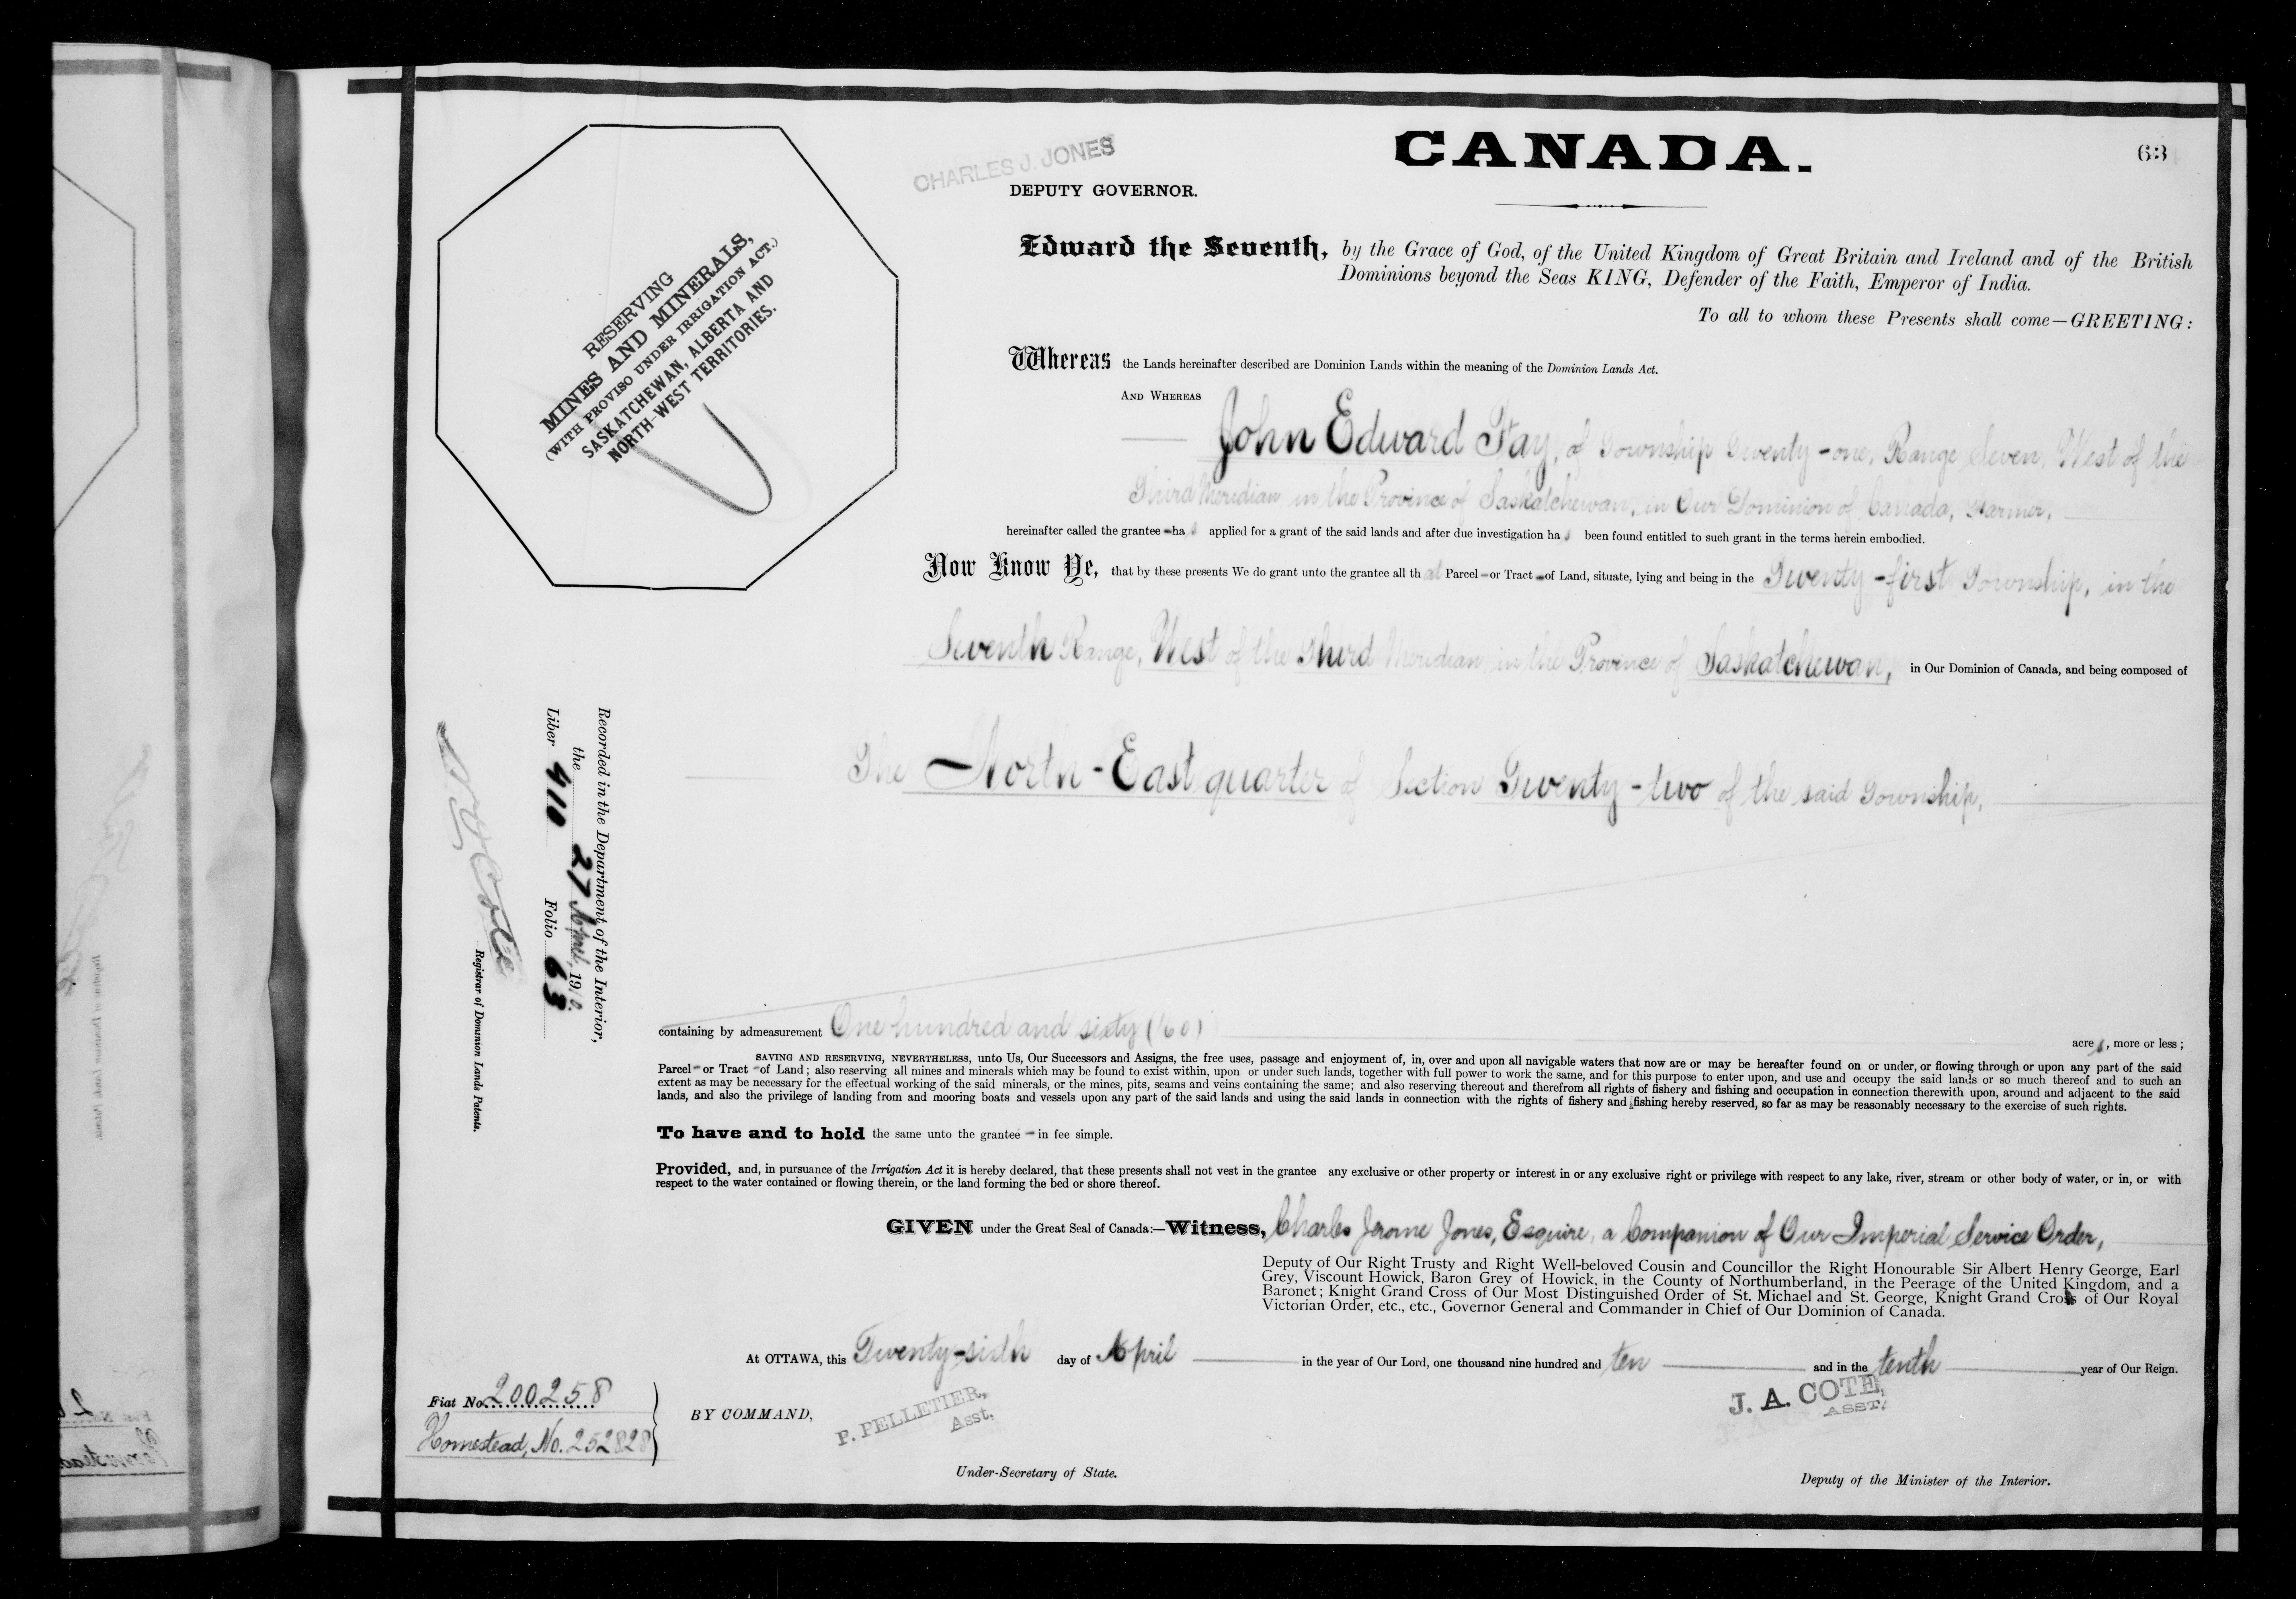 CANADA.
63
CHARLES J. JONES
DEPUTY GOVERNOR.
RESERVING
MINES AND MINERALS,
(WITH PROVISO UNDER IRRIGATION ACT.)
SASKATCHEWAN, ALBERTA AND
NORTH-WEST TERRITORIES.
Edward the Seventh, by the Grace of God, of the United Kingdom of Great Britain and Ireland and of the British
Dominions beyond the Seas KING, Defender of the Faith, Emperor of India.
To all to whom these Presents shall come—GREETING:
Whereas the Lands hereinafter described are Dominion Lands within the meaning of the Dominion Lands Act.
AND WHEREAS
John Edward Fay, of Township Twenty-one, Range Seven, West of the
Third Meridian in the Province of Saskatchewan, in Our Dominion of Canada, Farmer,
hereinafter called the grantee has applied for a grant of the said lands and after due investigation has been found entitled to such grant in the terms herein embodied.
Now Know Ye, that by these presents We do grant unto the grantee all that Parcel or Tract of Land, situate, lying and being in the Twenty-first Township, in the
Seventh Range, West of the Third Meridian in the Province of Saskatchewan, in Our Dominion of Canada, and being composed of
The North-East quarter of Section Twenty-two of the said Township,
Recorded in the Department of the Interior,
the 27 April, 1910.
Liber 410 Folio 63
N O Coté
Registrar of Dominion Lands Patents.
containing by admeasurement One hundred and sixty (160) acres, more or less;
SAVING AND RESERVING, NEVERTHELESS, unto Us, Our Successors and Assigns, the free uses, passage and enjoyment of, in, over and upon all navigable waters that now are or may be hereafter found on or under, or flowing through or upon any part of the said
Parcel or Tract of Land; also reserving all mines and minerals which may be found to exist within, upon or under such lands, together with full power to work the same, and for this purpose to enter upon, and use and occupy the said lands or so much thereof and to such an
extent as may be necessary for the effectual working of the said minerals, or the mines, pits, seams and veins containing the same; and also reserving thereout and therefrom all rights of fishery and fishing and occupation in connection therewith upon, around and adjacent to the said
lands, and also the privilege of landing from and mooring boats and vessels upon any part of the said lands and using the said lands in connection with the rights of fishery and fishing hereby reserved, so far as may be reasonably necessary to the exercise of such rights.
To have and to hold the same unto the grantee in fee simple.
Provided, and, in pursuance of the Irrigation Act it is hereby declared, that these presents shall not vest in the grantee any exclusive or other property or interest in or any exclusive right or privilege with respect to any lake, river, stream or other body of water, or in, or with
respect to the water contained or flowing therein, or the land forming the bed or shore thereof.
GIVEN under the Great Seal of Canada:—Witness, Charles Jerome Jones, Esquire, a Companion of Our Imperial Service Order,
Deputy of Our Right Trusty and Right Well-beloved Cousin and Councillor the Right Honourable Sir Albert Henry George, Earl
Grey, Viscount Howick, Baron Grey of Howick, in the County of Northumberland, in the Peerage of the United Kingdom, and a
Baronet; Knight Grand Cross of Our Most Distinguished Order of St. Michael and St. George, Knight Grand Cross of Our Royal
Victorian Order, etc., etc., Governor General and Commander in Chief of Our Dominion of Canada.
At OTTAWA, this Twenty-sixth day of April in the year of Our Lord, one thousand nine hundred and ten and in the tenth year of Our Reign.
Fiat No. 200258
Homestead, No. 252828
BY COMMAND,
P. PELLETIER,
Asst.
Under-Secretary of State.
J. A. COTE,
ASST.
Deputy of the Minister of the Interior.